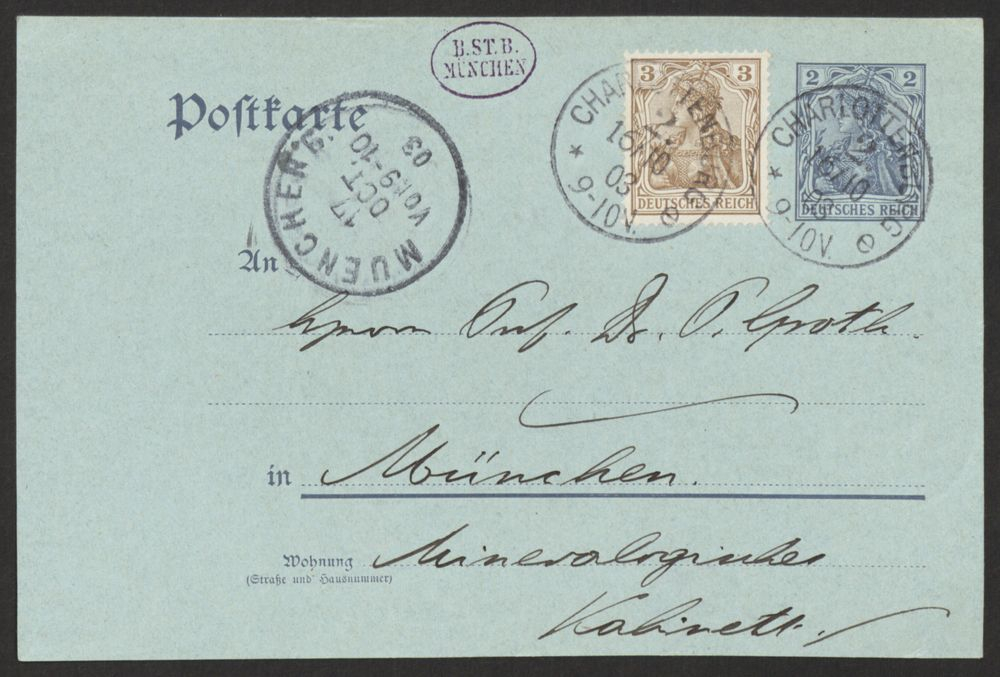 B.ST.B.
MÜNCHEN
Postkarte
MUENCHEN.9.
17
OCT.
VOR 9-10
03
3 3
DEUTSCHES REICH
2 2
DEUTSCHES REICH
* CHARLOTTENBURG
2
16/10
03
9-10V.
e
* CHARLOTTENBURG
2
16/10
03
9-10V.
e
An
Herrn Prof. Dr. P. Groth.
in München.
Wohnung Mineralogisches
(Straße und Hausnummer)
Kabinett.